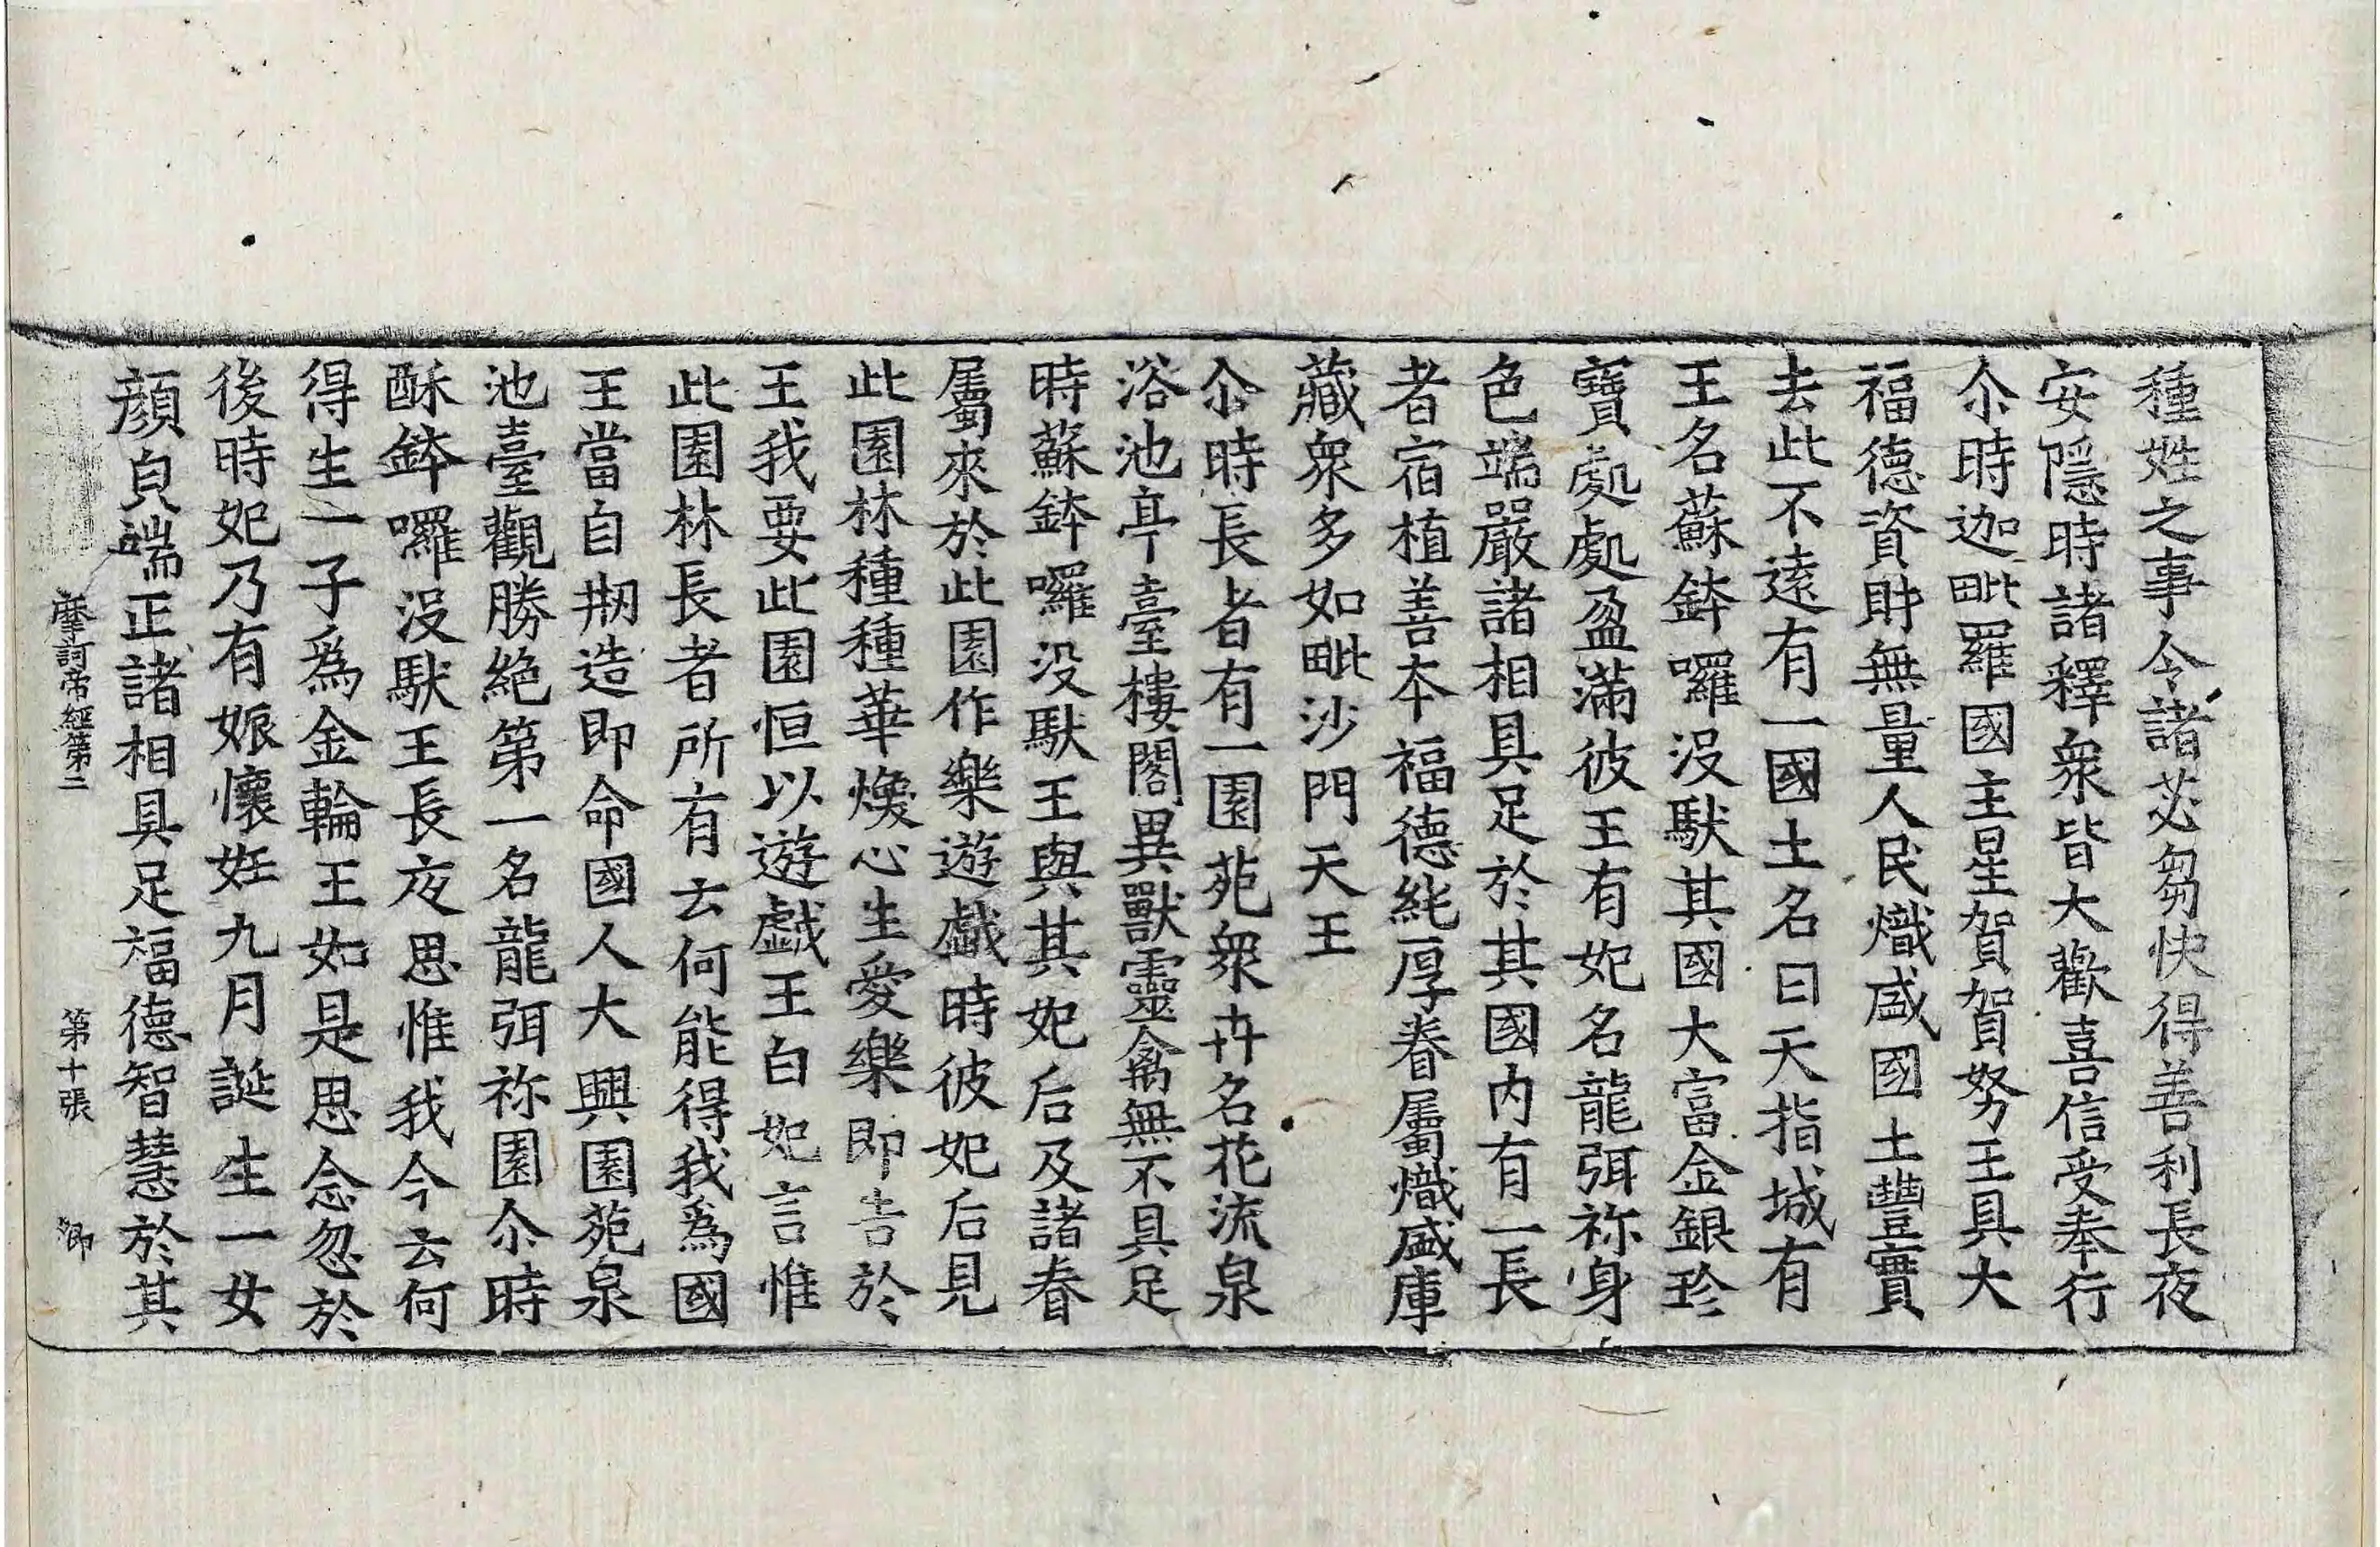 種姓之事令諸苾芻快得善利長夜
安隱時諸釋衆皆大歡喜信受奉行
尒時迦毗羅國主星賀賀努王具大
福德資財無量人民熾盛國土豐實
去此不遠有一國土名曰天指城有
王名蘇鉢囉沒馱其國大富金銀珍
寶處處盈滿彼王有妃名龍弭祢身
色端嚴諸相具足於其國内有一長
者宿植善本福德純厚眷屬熾盛庫
藏衆多如毗沙門天王
尒時長者有一園苑衆卉名花流泉
浴池亭臺樓閣異獸靈禽無不具足
時蘇鉢囉没馱王與其妃后及諸眷
屬來於此園作樂遊戲時彼妃后見
此園林種種華煥心生愛樂即告於
王我要此園恒以遊戲王白妃言惟
此園林長者所有云何能得我爲國
王當自剏造即命國人大興園苑泉
池臺觀勝絶第一名龍弭祢園尒時
酥鉢囉沒馱王長夜思惟我今云何
得生一子爲金輪王如是思念忽於
後時妃乃有娠懷妊九月誕生一女
顔皃端正諸相具足福德智慧於其
摩訶帝經第二 第十張 卿